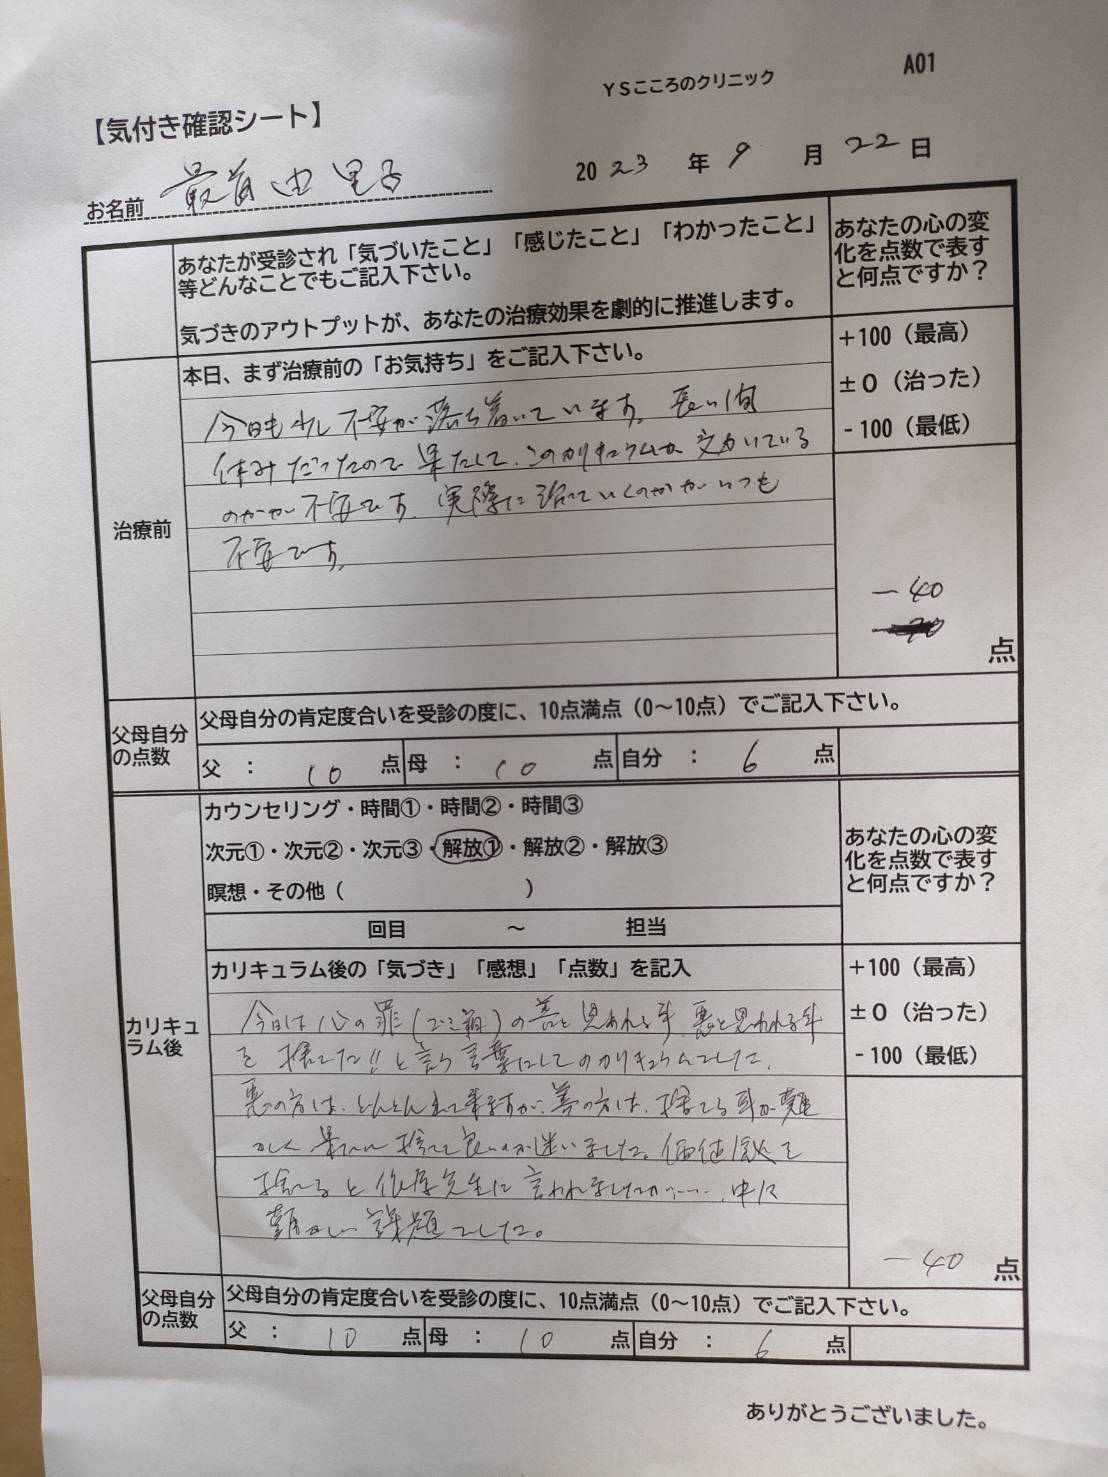 YSこころのクリニック
A01
【気付き確認シート】
2023年9月22日
お名前 最首由里子
あなたが受診され「気づいたこと」「感じたこと」「わかったこと」
等どんなことでもご記入下さい。
気づきのアウトプットが、あなたの治療効果を劇的に推進します。
あなたの心の変
化を点数で表す
と何点ですか？
治療前
本日、まず治療前の「お気持ち」をご記入下さい。
+100（最高）
±0（治った）
-100（最低）
今日も少し不安が落ち着いています。長い間
休みだったので果たして、このカリキュラムが効いている
のかが不安です。実際に治っていくのかがいつも
不安です。
-40
点
父母自分
の点数
父母自分の肯定度合いを受診の度に、10点満点（0～10点）でご記入下さい。
父 ： 10 点 母 ： 10 点 自分 ： 6 点
カリキュ
ラム後
カウンセリング・時間①・時間②・時間③
次元①・次元②・次元③・解放①・解放②・解放③
瞑想・その他（ ）
回目 ～ 担当
あなたの心の変
化を点数で表す
と何点ですか？
カリキュラム後の「気づき」「感想」「点数」を記入
+100（最高）
±0（治った）
-100（最低）
今日は心の罪（ゴミ箱）の善と思われる事、悪と思われる事
を捨てた!!と言う言葉にしてのカリキュラムでした。
悪の方は、どんどん出て来ますが、善の方は、捨てる事が難
かしく果たして捨てて良いのか迷いました。価値観を
捨てると 先生に言われましたが……、中々
難かしい課題でした。
-40
点
父母自分
の点数
父母自分の肯定度合いを受診の度に、10点満点（0～10点）でご記入下さい。
父 ： 10 点 母 ： 10 点 自分 ： 6 点
ありがとうございました。